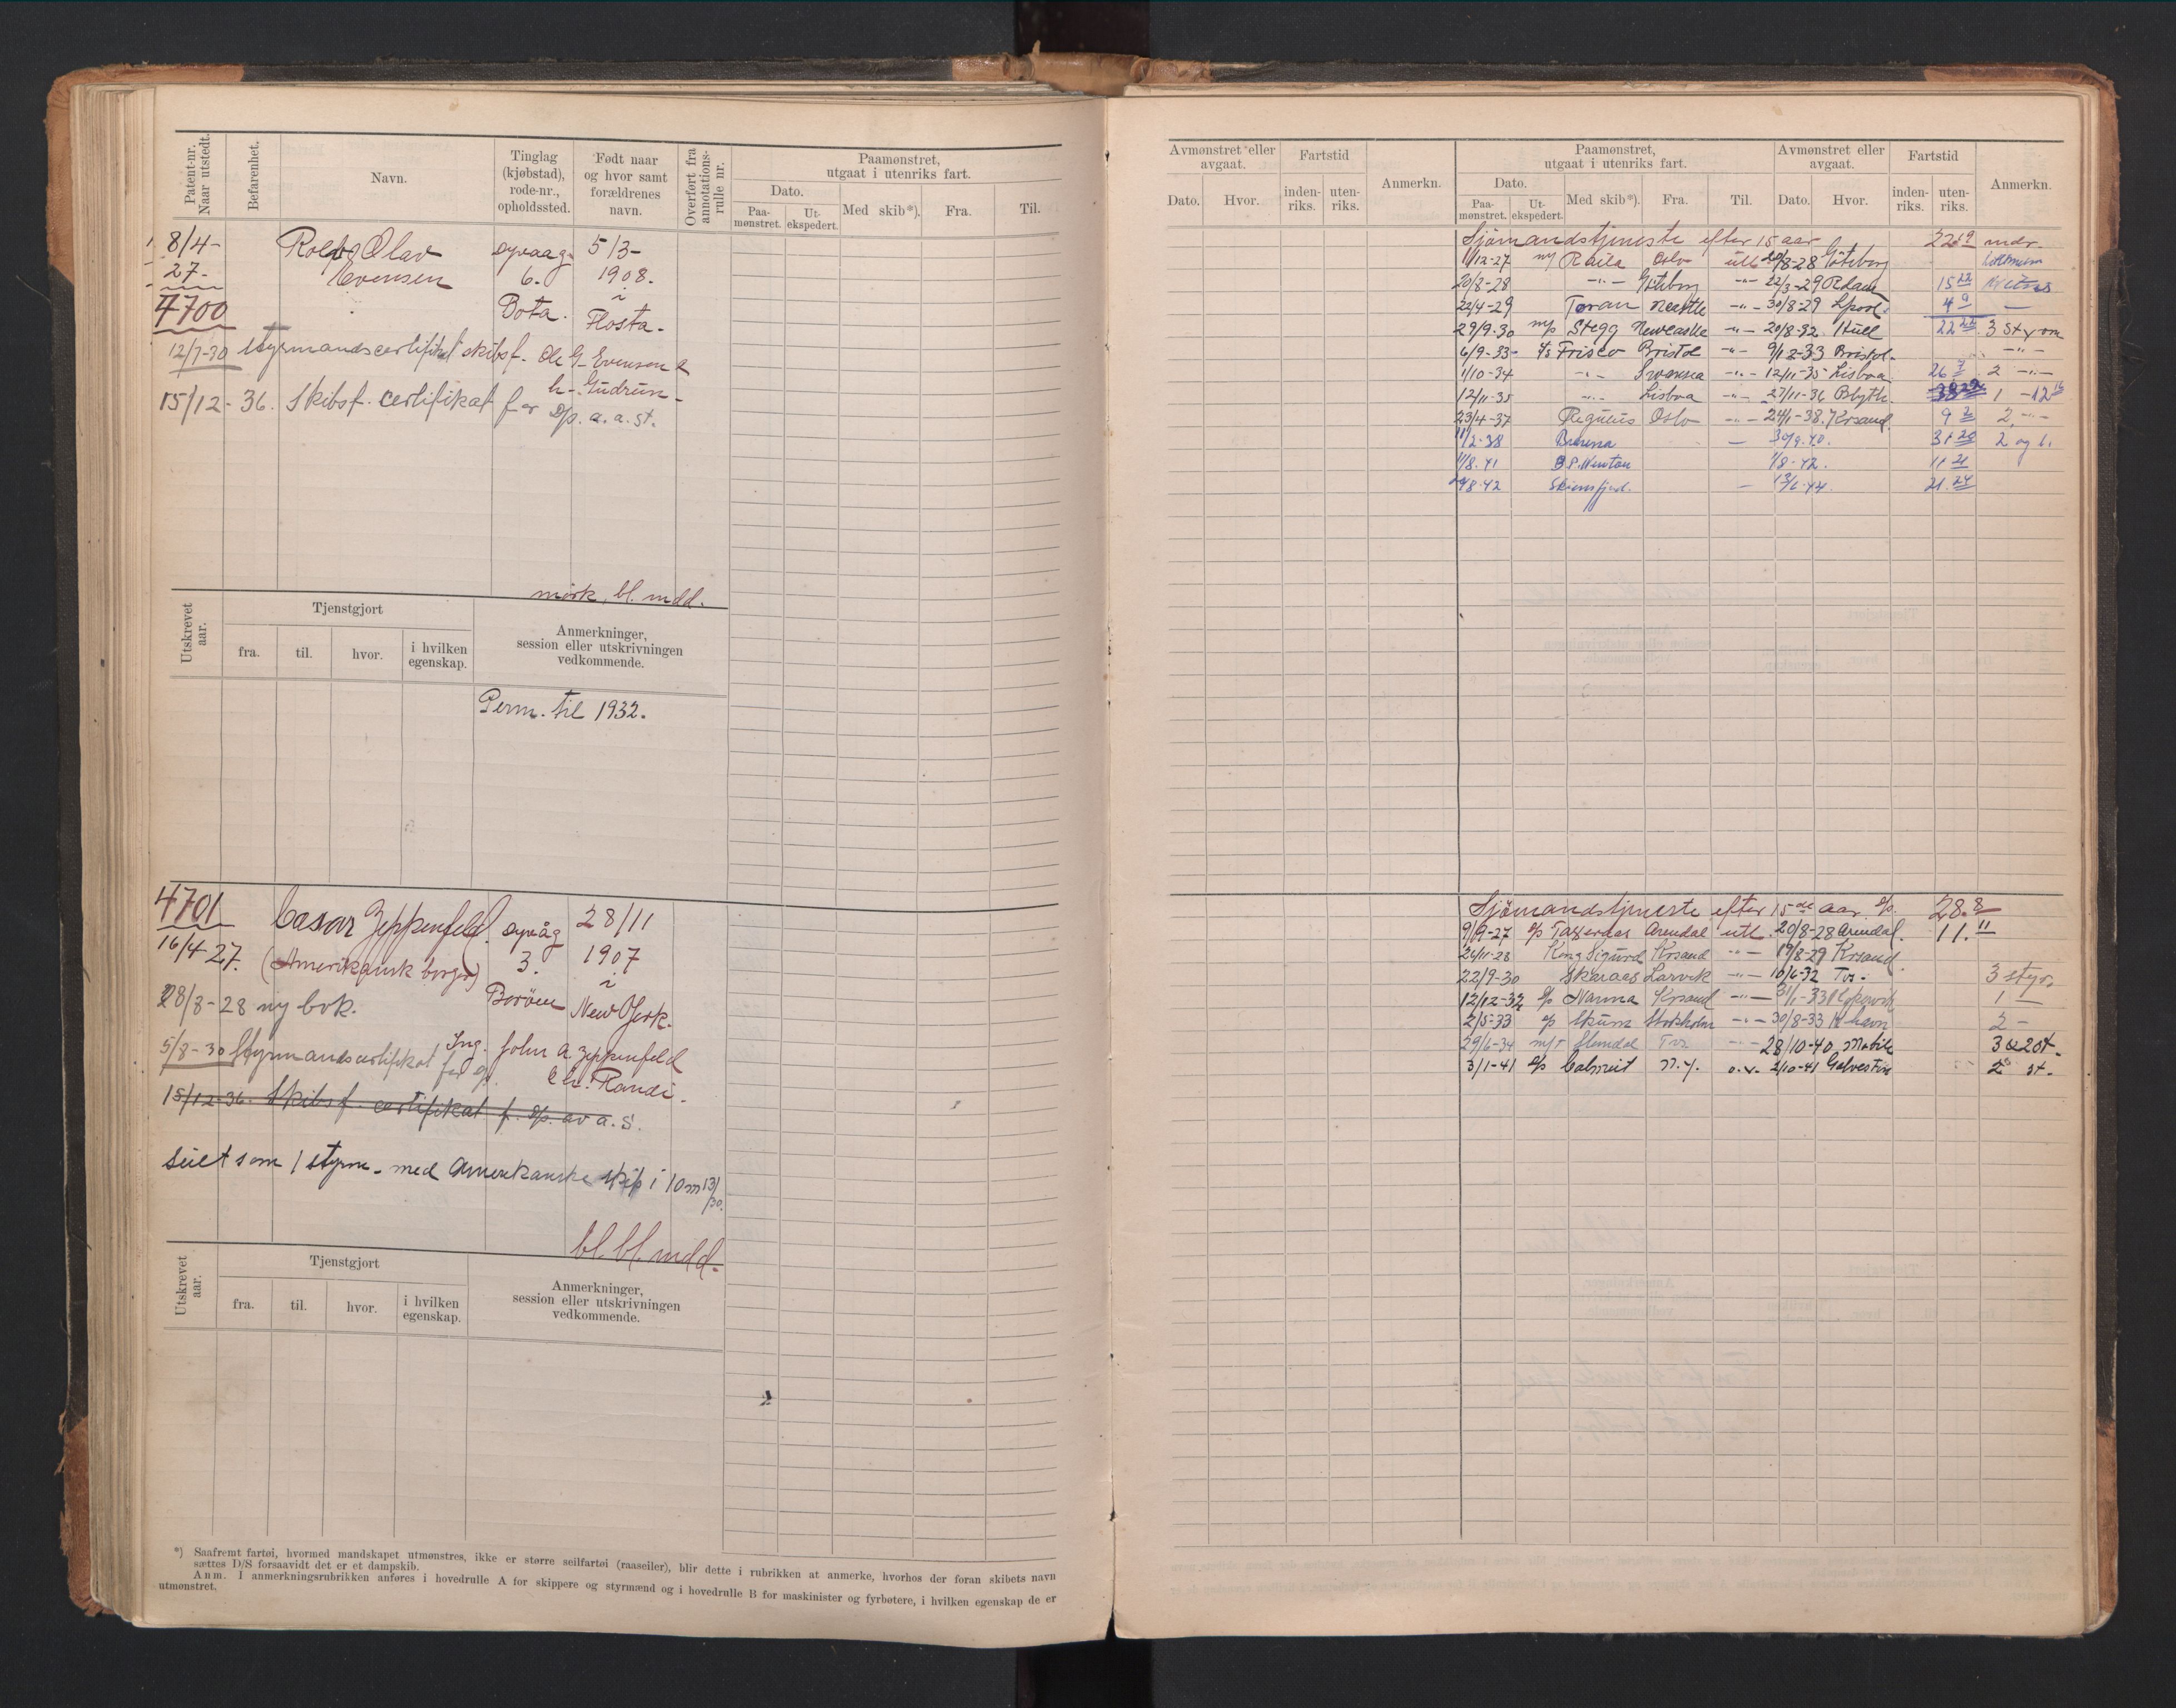 Patent-nr. Naar utstedt.
Befarenhet.
Navn.
Tinglag (kjøbstad), rode-nr., opholdssted.
Født naar og hvor samt forældrenes navn.
Overført fra annotations-rulle nr.
Paamønstret, utgaat i utenriks fart.
Dato.
Paa-mønstret.
Ut-ekspedert.
Med skib*).
Fra.
Til.
8/4-27-
4700
Olav
Evensen
6.
Bota.
5/3-
1908.
i
Flosta.
12/7-30 styrmandscertifikat skibsf. Ole G. Evensen &
h. Gudrun.
15/12-36. Skibsf. certifikat for D/p. a. a. st.
mørk, bl. mdd.
Utskrevet aar.
Tjenstgjort
fra.
til.
hvor.
i hvilken egenskap.
Anmerkninger, session eller utskrivningen vedkommende.
Perm. til 1932.
4701
16/4 27.
Cæsar Zeppenfeld.
(Amerikansk borger)
3.
Borøen
28/11
1907
i
New York.
28/8-28 ny bok.
5/8-30 Styrmandscertifikat
Ing. John A. Zeppenfeld
Randi.
15/12-36. Skibsf. certifikat f. D/p. av a. S.
Seilt som 1 styrm. med Amerikanske skip i 10 m 13/30.
bl. bl. mdd.
Utskrevet aar.
Tjenstgjort
fra.
til.
hvor.
i hvilken egenskap.
Anmerkninger, session eller utskrivningen vedkommende.
*) Saafremt fartøi, hvormed mandskapet utmønstres, ikke er større seilfartøi (raaseiler), blir dette i rubrikken at anmerke, hvorhos der foran skibets navn
sættes D/S forsaavidt det er et dampskib.
Anm. I anmerkningsrubrikken anføres i hovedrulle A for skippere og styrmænd og i hovedrulle B for maskinister og fyrbøtere, i hvilken egenskap de er
utmønstret.
Avmønstret eller avgaat.
Dato.
Hvor.
Fartstid
inden-riks.
uten-riks.
Anmerkn.
Paamønstret, utgaat i utenriks fart.
Dato.
Paa-mønstret.
Ut-ekspedert.
Med skib*).
Fra.
Til.
Avmønstret eller avgaat.
Dato.
Hvor.
Fartstid
inden-riks.
uten-riks.
Anmerkn.
Sjømandstjeneste efter 15 aar 22.19 mdr.
11/12-27 Oslo utl 20/8-28 Göteborg
20/8-28 -"- Göteborg -"- 22/3-29 Rdam 15 22
22/4-29 Toran -"- 30/8-29 Lpool. 4 9 —
29/9-30 m/p Stegg Newcastle -"- 20/8-32 Hull 22 22 3 Styrm
6/9-33- Frisco Bristol -"- 9/12-33 Bristol- -"-
1/10-34 -"- Swansea -"- 12/11-35 Lisboa 26 7 2 -"-
12/11-35 -"- Lisboa -"- 27/11-36 Blyth. 1 -12 16
23/4-37 Regulus Oslo -"- 24/1-38. Krsand. 9 2 2 -"-
11/2-38 — 30/9.40. 31 20 2 og 1.
11/8.41 B.P. Newton 1/8-42. 11 21
8.42 Skiensfjord. — 13/6.44. 21.24
Sjømandstjeneste efter 15 de aar D/p. 28.8
9/9-27 D/p Arendal utl. 20/8-28 Arendal. 11. 11
26/11-28 Kong Sigurd Krsand -"- 19/8-29 Krsand
22/9-30 Skaraas Larvik -"- 10/6-32 3 styr.
12/12-32 D/p Nanna Krsand -"- 31/1-33 1 —
2/5-33 D/p Skum Stokholm -"- 30/8-33 Khavn 2 -
29/6-34 m/t -"- 28/10-40 Mobile 3 & 2 st.
3/1-41 D/p n.y. 2/10-41 Galveston 2 st.